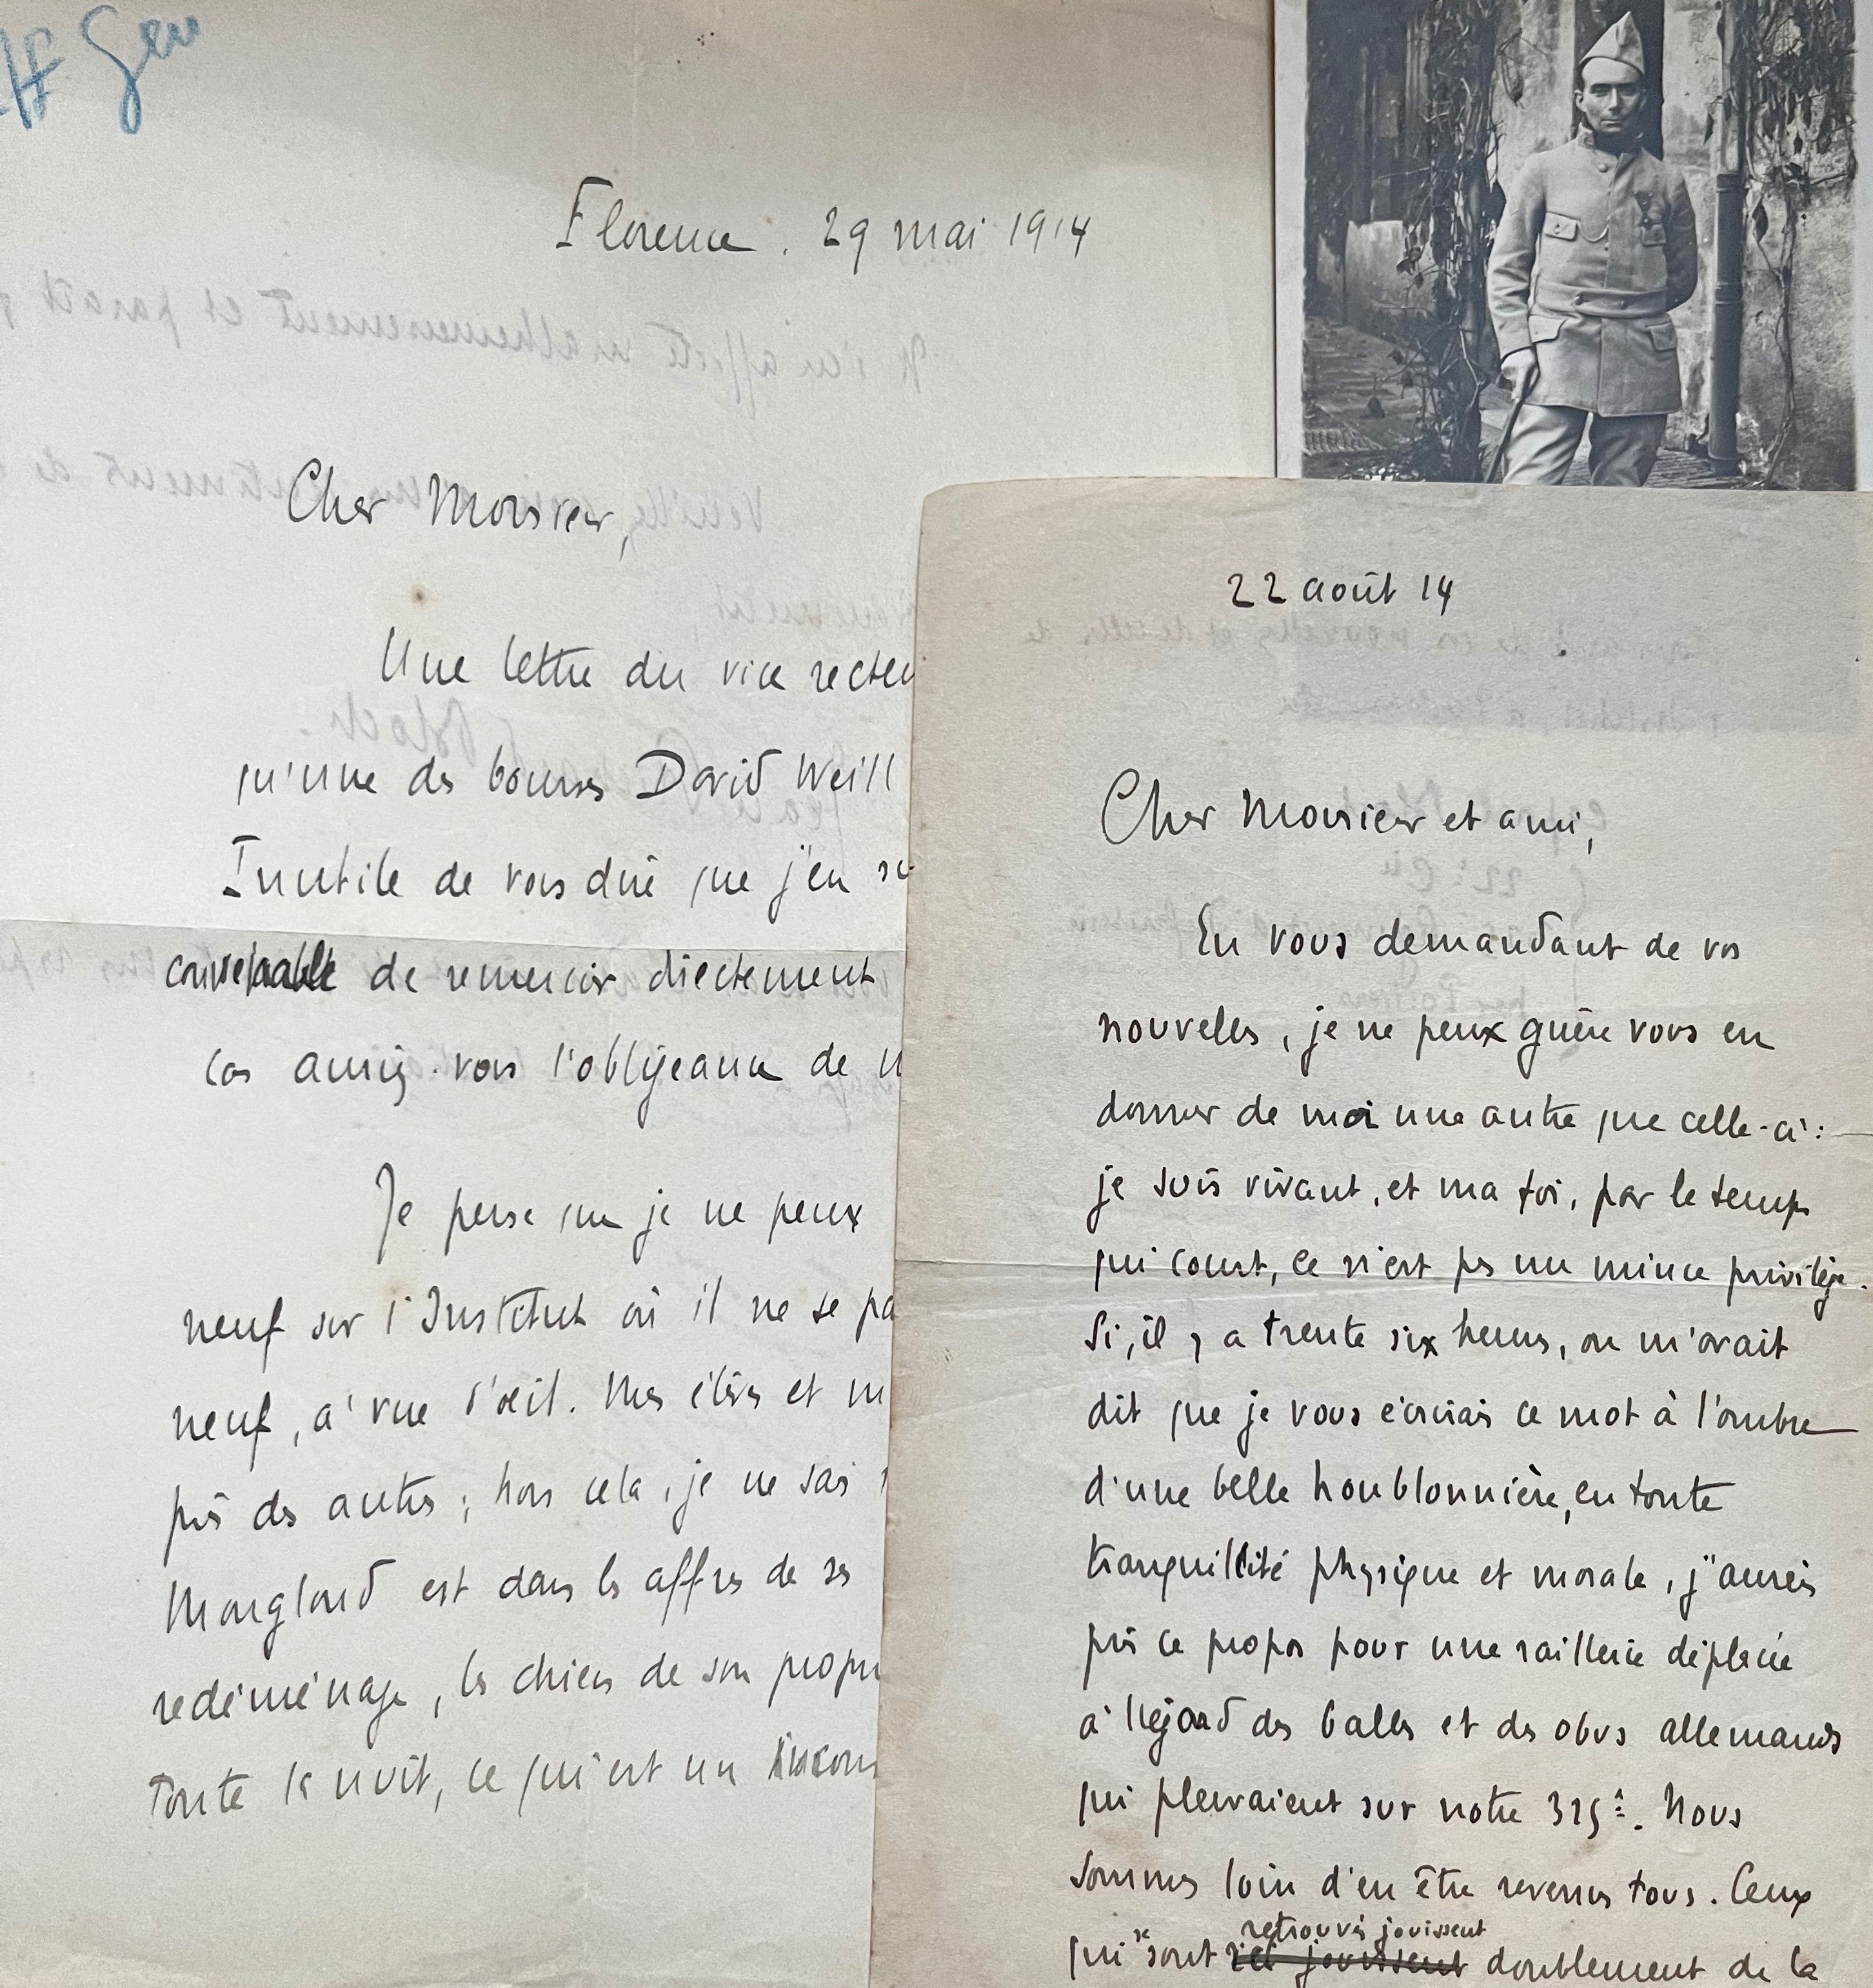 Florence. 29 mai 1914
Cher Monsieur,
Une lettre du vice recteu
qu'une des bourses David Weill
Inutile de vous dire que j'en
convenable de remercier directement
cas auriez-vous l'obligeance de
Je pense que je ne peux
neuf sur l'Institut où il ne se pa
neuf, à vue d'œil. Mes élèves et m
près des autres ; hors cela, je ne sais
Monglond est dans les affres de ses
redéménage, les chiens de son propri
toute la nuit, ce qui est un incon
22 août 14
Cher Monsieur et ami,
En vous demandant de vos
nouvelles, je ne peux guère vous en
donner de moi une autre que celle-ci :
je suis vivant, et ma foi, par le temps
qui court, ce n'est pas un mince privilège.
Si, il y a trente six heures, on m'avait
dit que je vous écrirais ce mot à l'ombre
d'une belle houblonnière, en toute
tranquillité physique et morale, j'aurais
pris ce propos pour une raillerie déplacée
à l'égard des balles et des obus allemands
qui pleuvaient sur notre 325e. Nous
sommes loin d'en être revenus tous. Ceux
qui se sont retrouvés jouissent doublement de la